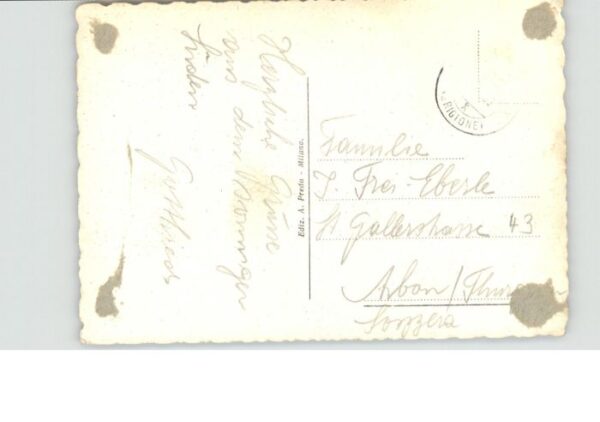 Herzliche Grüsse
aus dem
Süden
Gottfried
Ediz. A. Preda - Milano.
Familie
J. Frei-Eberle
St Gallerstrasse 43
Arbon/
Svizzera